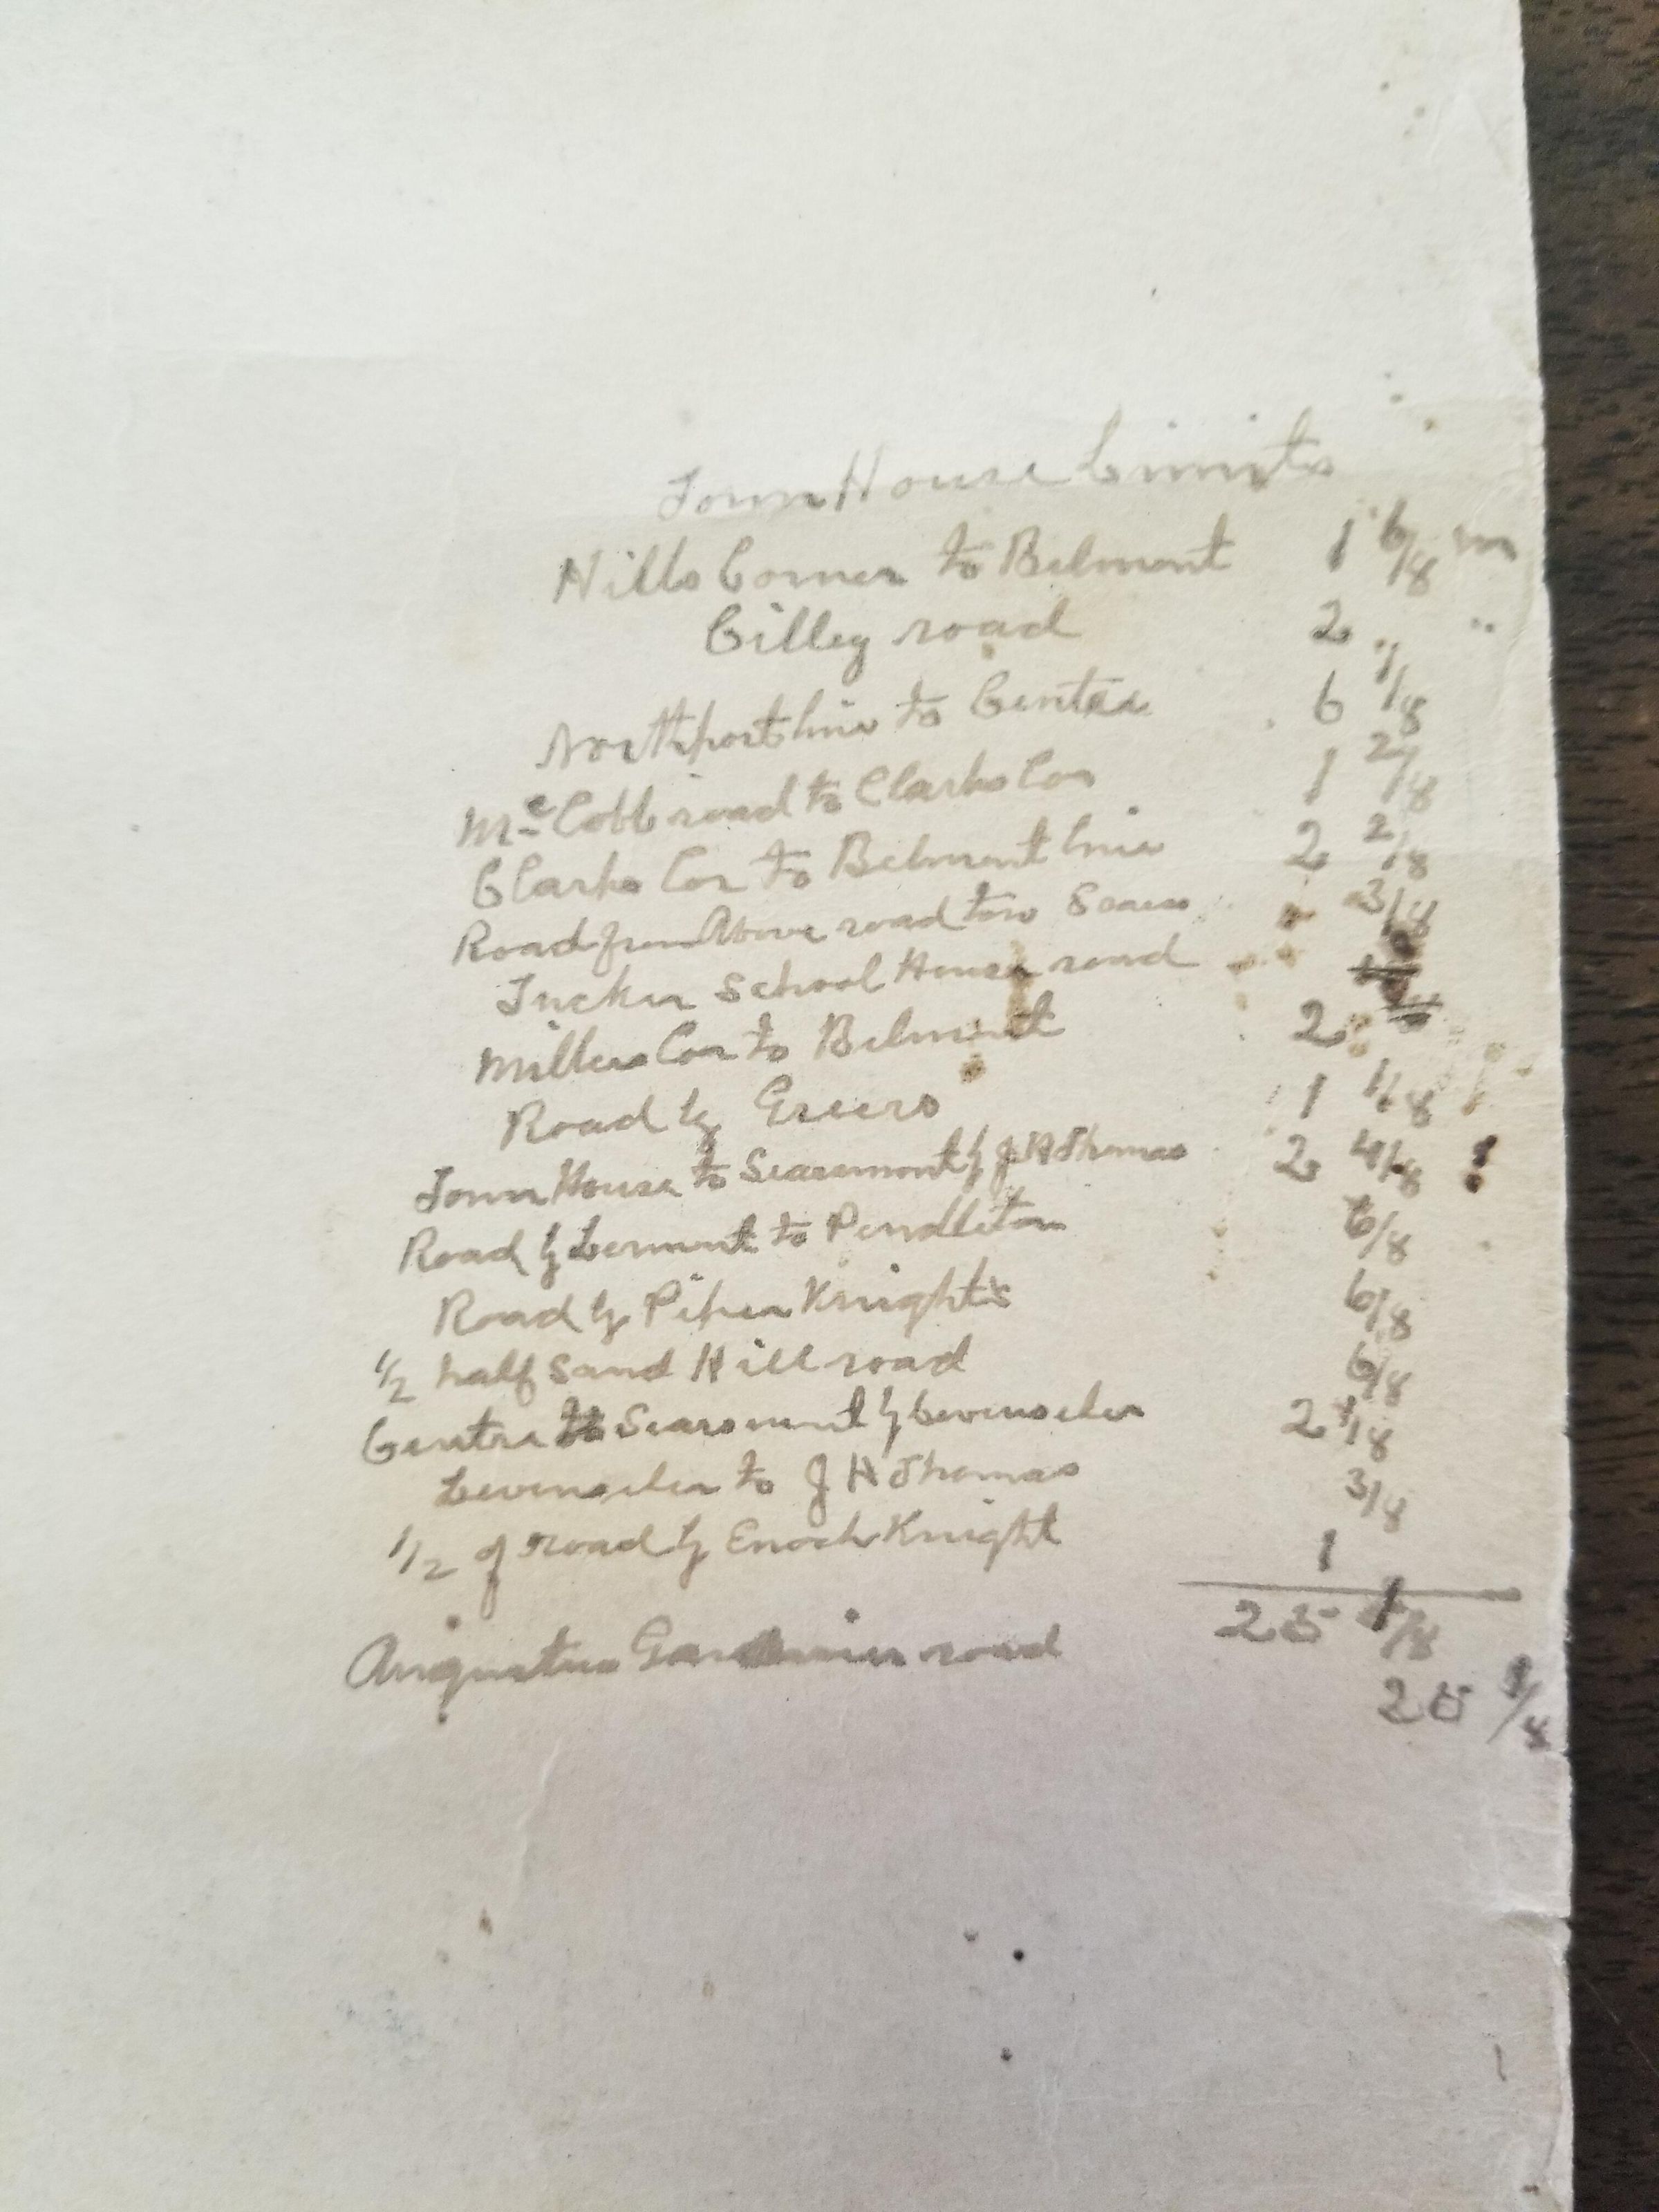 Town House Limits
Hills Corner to Belmont 1 6/8 m
Cilley road 2 " "
Northport line to Centre 6 1/8
Mc Cobb road to Clarks Cor 1 2/8
Clarks Cor to Belmont line 2 2/8
Road from Above road to 3/8
Tucker School House road
Millers Cor to Belmont 2
Road by Greers 1 1/8
Town House to Searsmont by J H Thomas 2 4/8
Road by Lermont to Pendleton 6/8
Road by Piper Knights 6/8
1/2 half Sand Hill road 6/8
Centre to Searsmont by Levenseler 2 1/8
Levenseler to J H Thomas 3/8
1/2 of road by Enoch Knight 1
25 1/8
Augustus road
25 1/8